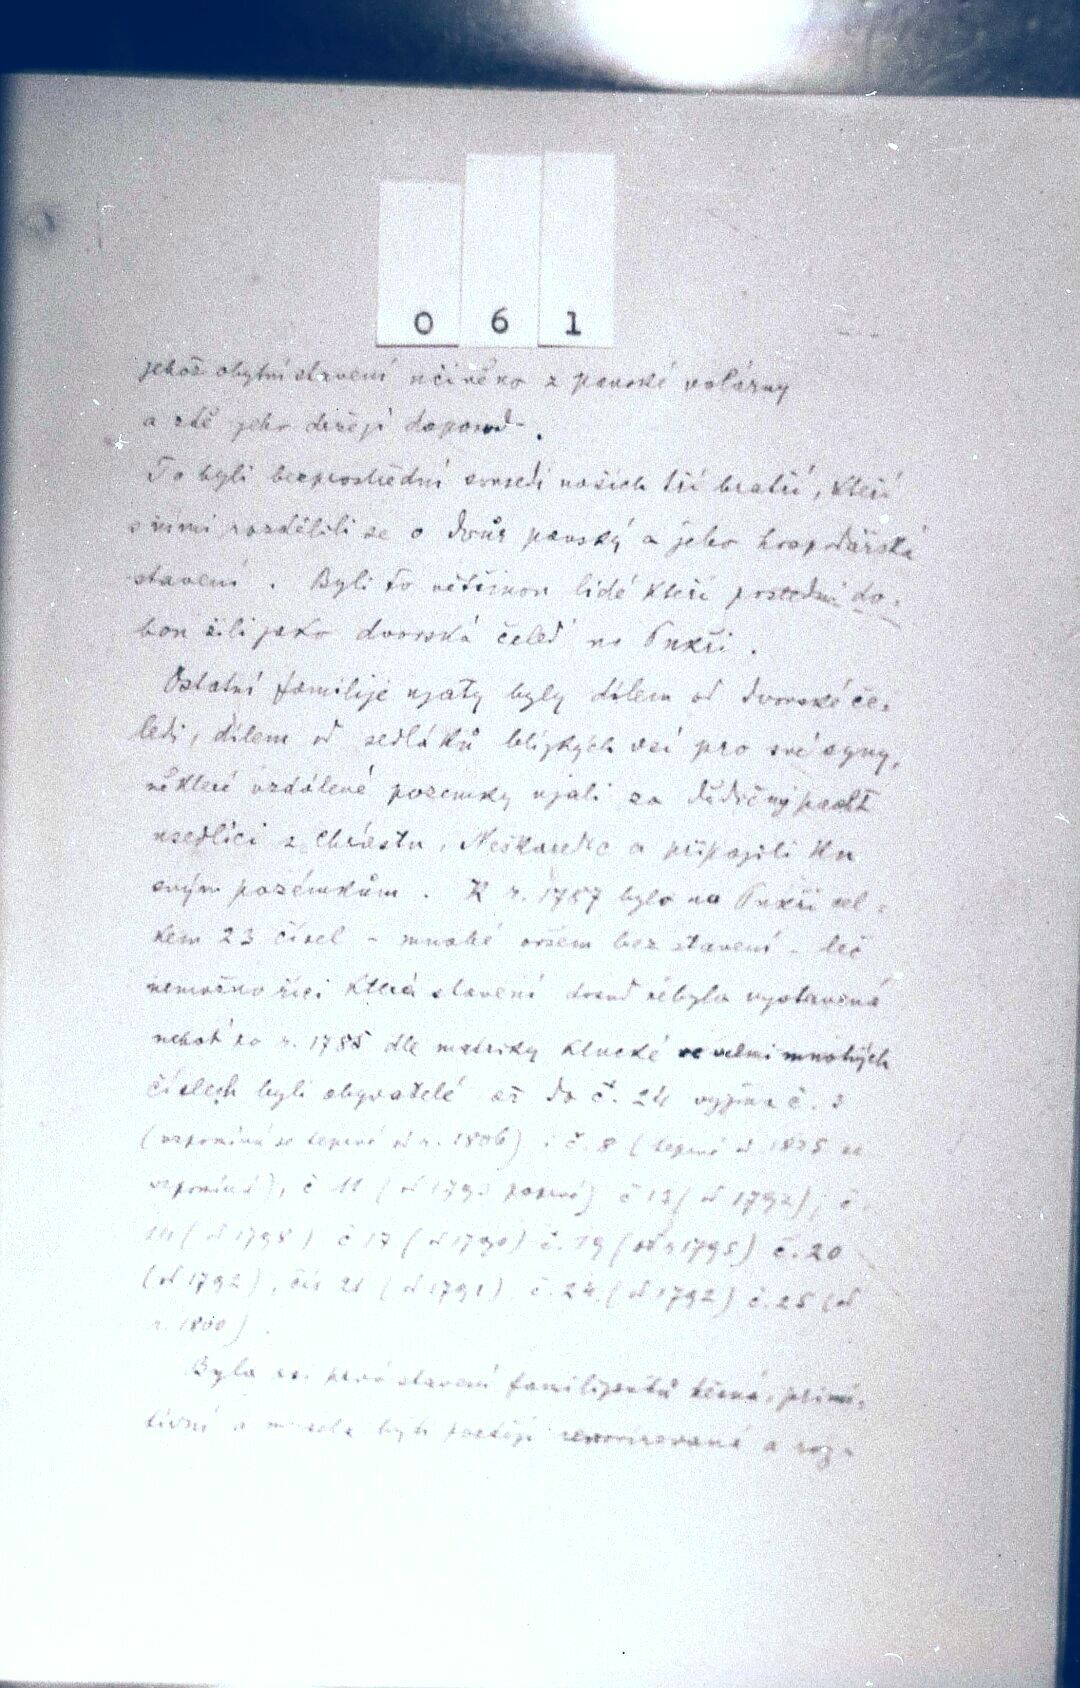 0 6 1
jehož obytní stavení učiněno z panské volárny
a zdě jeho drží doposud.
To byli bezprostřední sousedi našich tří bratří, kteří
s nimi rozdělili se o dvůr panský a jeho hospodářská
stavení. Byli to většinou lidé kteří poslední do-
bou žili jako dvorská čeleď na Pukři.
Ostatní familije ujaty byly dílem od dvorské če-
ledi, dílem od sedláků blízkých vsí pro své syny,
některé vzdálené pozemky ujali za dědičný pacht
usedlíci z Chrástu, a připojili ku
svým pozemkům. K r. 1787 bylo na Pukři cel-
kem 23 čísel - mnohé ovšem bez stavení - leč
nemožno říci která stavení dosud nebyla vystavená
neboť po r. 1785 dle matriky Klucké ve velmi mnohých
číslech byli obyvatelé až do č. 24 vyjma č. 3
(vzpomíná se teprvé od r. 1806) i č. 8 (teprvé od 1825 se
vzpomíná), č 11 (od 1793 poprvé) č 13 (od 1792), č.
14 (od 1798) č 17 (od 1790) č. 19 (od r 1795) č. 20
(od 1792), čís 21 (od 1791) č. 24 (od 1792) č. 25 (od
r. 1800).
Byla asi prvé stavení familijantů těsná, primi-
tivní a musela býti později renovirovaná a roz-